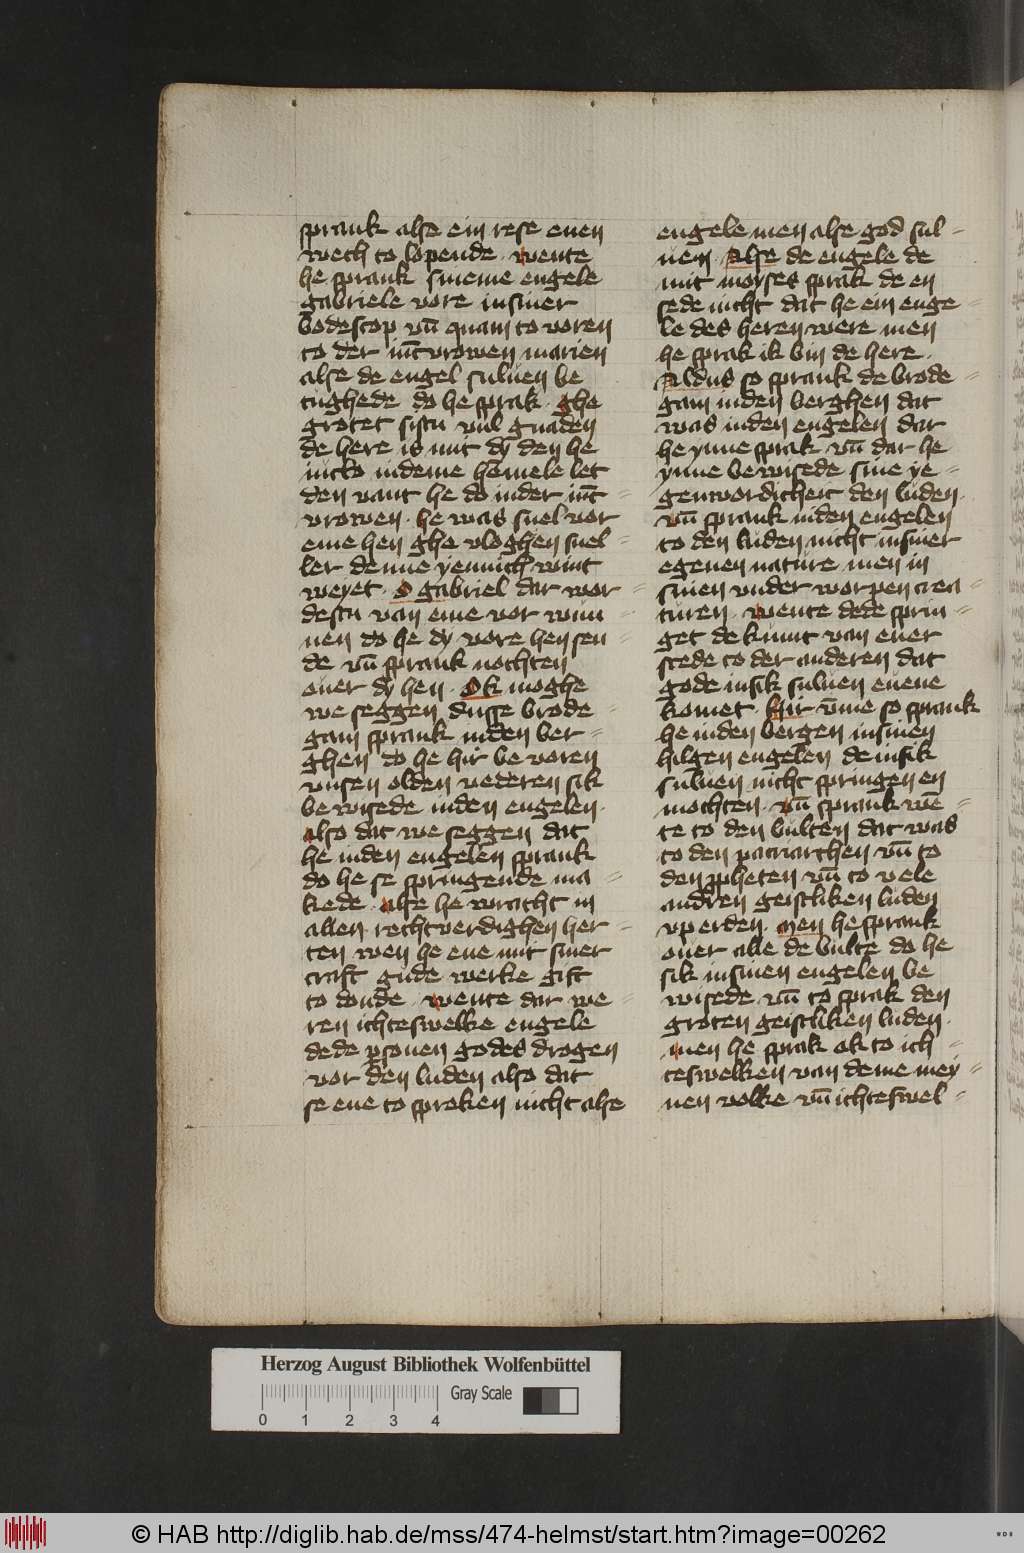 sprank alse ein rese enen
wech to lopende · wente
he sprank sineme engele
gabriele vore in siner
bodescop vn̄ quam to voren
to der iūcvrowen marien
alse de engel suluen be
tughede do he sprak · ghe
grotet sistu vul gnaden
de here is mit dy den he
nicht in deme hemele let
den vant he do in der iūc=
vrowen · he was snel vor
eme hen ghe vloghen snel=
ler denne yennich wint
weyet · O gabriel dar wor=
destu van eme vor wun=
nen do he dy vore hen sen=
de vn̄ sprank nochten
ouer dy hen · Ok moghe
we seggen dusse brode=
gam sprank in den ber=
ghen do he hir be voren
vnsen olden vederen sik
be wisede in den engelen ·
also dat we seggen dat
he in den engelen sprank
do he se springende ma=
kede · alse he wracht in
allen rechtverdighen her=
ten wen he ene mit siner
craft gude werke gift
to donde · wente dar we=
ren ichteswelke engele
dede ꝑsonen godes drogen
vor den luden also dat
se ene to sproken nicht alse
engele men alse god sul=
uen · Alse de engele de
mit moyses sprak de en
sede nicht dat he ein enge=
le des heren were men
he sprak ik bin de here ·
Aldus so sprank de brode=
gam in den berghen dat
was in den engelen dar
he ynne sprak vn̄ dar he
ynne be wisede sine ye=
genwordicheit den luden ·
vn̄ sprank in den engelen
to den luden nicht in siner
egenen nature men in
sinen vnder worpen crea=
turen · wente dede sprin=
get de kumt van ener
stede to der anderen dat
gode in sik suluen euene
komet · hir v̄me so sprank
he in den bergen in sinen
hilgen engelen de in sik
suluen nicht springen en
mochten · vn̄ sprank wē=
te to den bulten dat was
to den patriarchen vn̄ to
den ꝓpheten vn̄ to vele
andren geistliken luden
vp erden · Men he sprank
ouer alle de bulte do he
sik in sinen engelen be
wisede vn̄ to sprak den
groten geistliken luden ·
men he sprak ok to ich=
teswelken van deme mey=
nen volke vn̄ ichteswel=
Herzog August Bibliothek Wolfenbüttel
Gray Scale
0 1 2 3 4
© HAB http://diglib.hab.de/mss/474-helmst/start.htm?image=00262